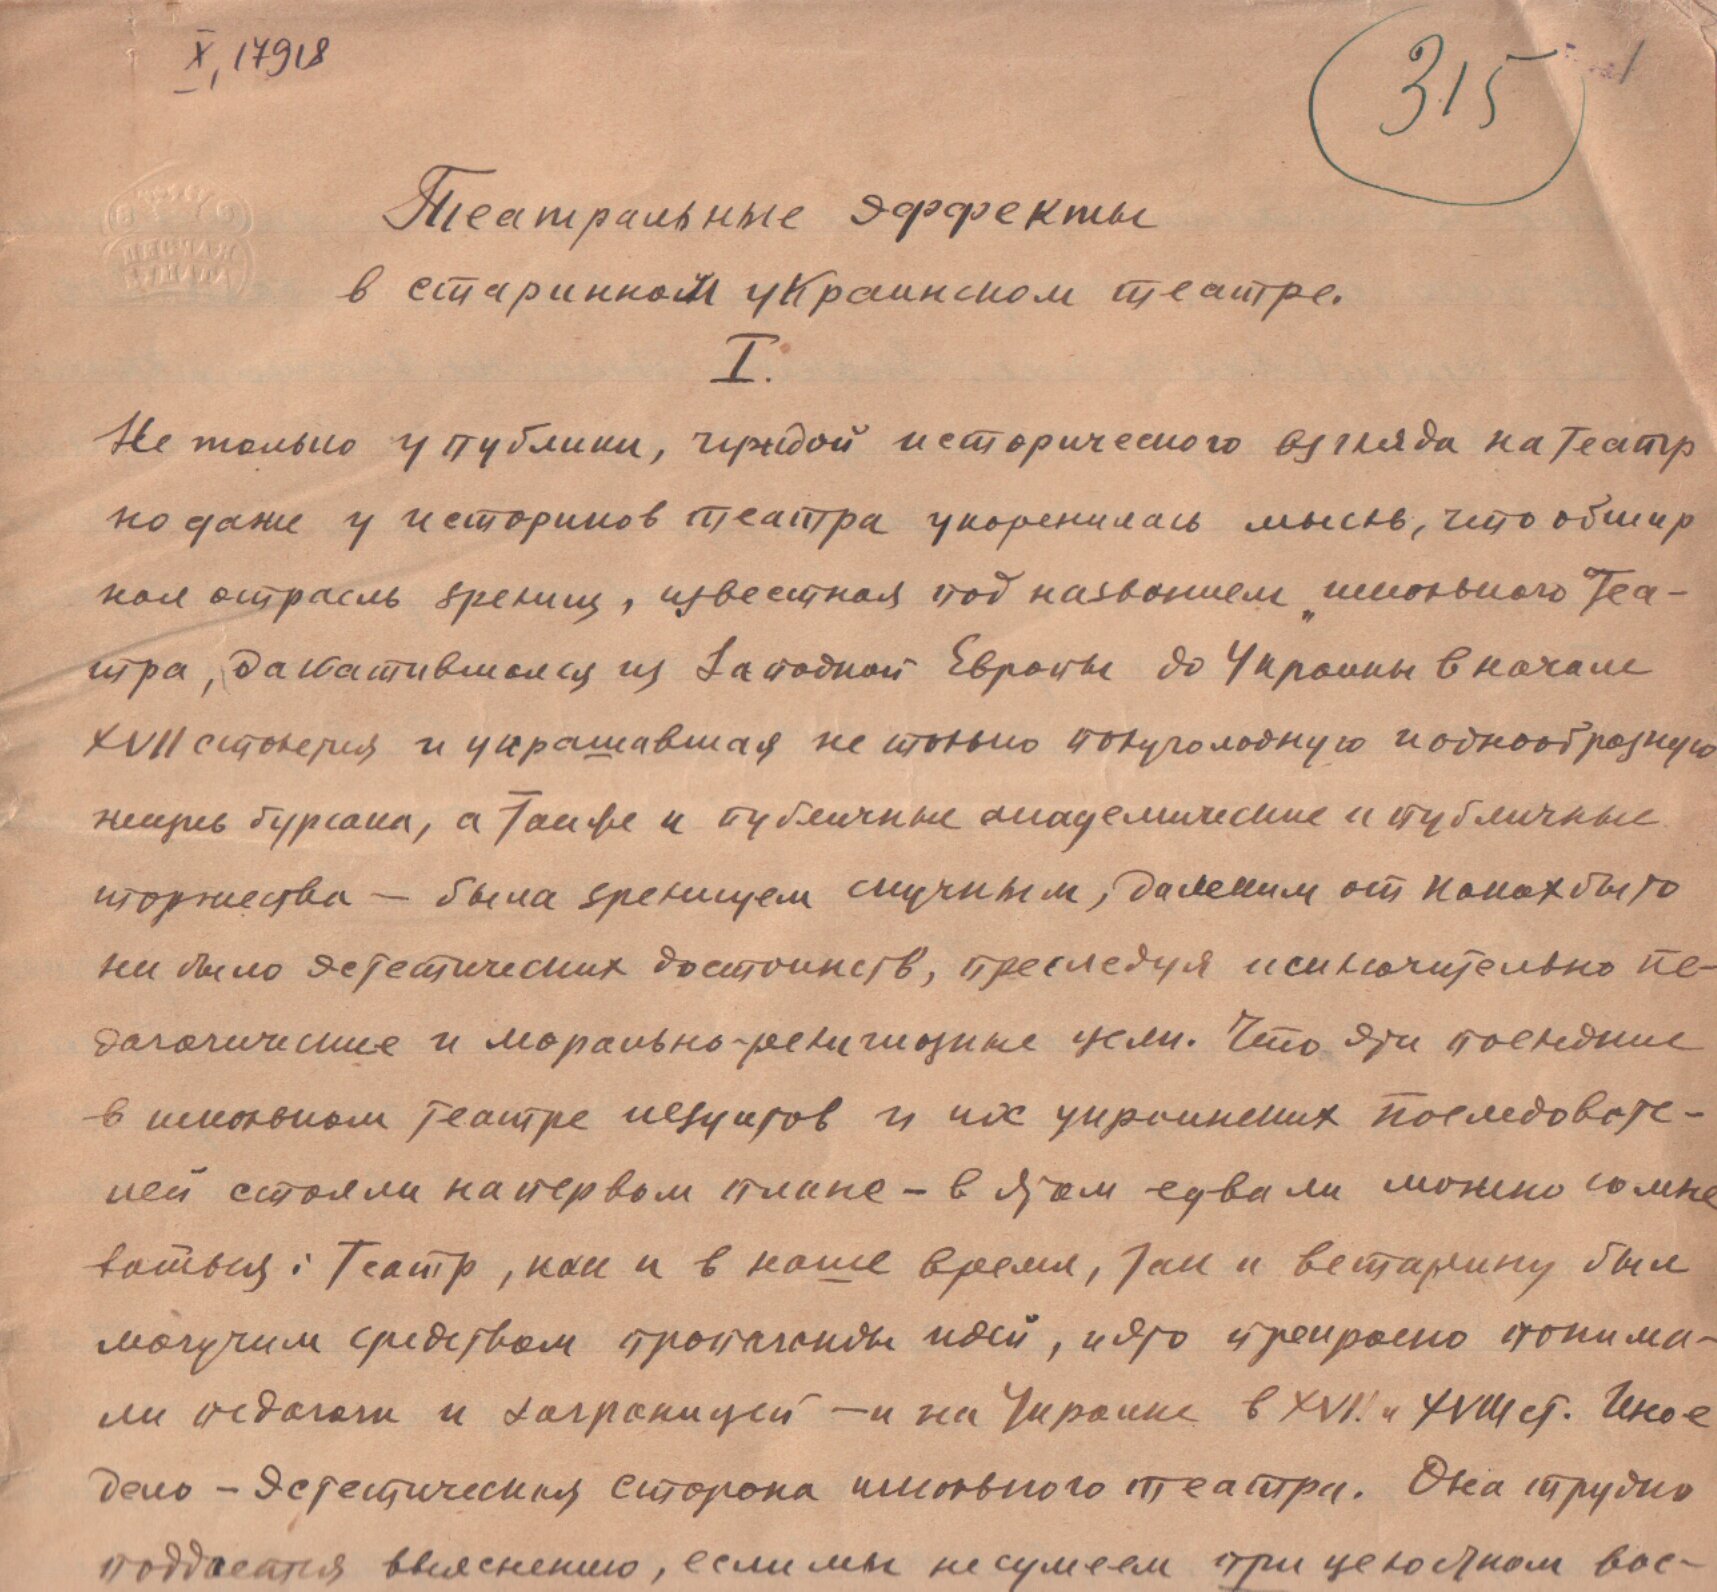 X, 17918
315
Театральные эффекты
в старинном украинском театре.
I.
Не только у публики, чуждой исторического взгляда на театр
но даже у историков театра укоренилась мысль, что обшир
ная отрасль зрелищ, известная под названием „школьного теа-
тра, докатившаяся из Западной Европы до Украины в начале
XVII столетия и украшавшая не только полуголодную и однообразную
жизнь бурсака, а также и публичные академические и публичные
торжества — была зрелищем скучным, далеким от каких бы то
ни было эстетических достоинств, преследуя исключительно пе-
дагогические и морально-религиозные цели. Что эти последние
в школьном театре иезуитов и их украинских последовате-
лей стояли на первом плане — в этом едва ли можно сомне
ваться: театр, как и в наше время, так и в старину был
могучим средством пропаганды идей, и это прекрасно понима-
ли педагоги и заграницей — и на Украине в XVII и XVIII ст. Иное
дело — эстетическая сторона школьного театра. Она трудно
поддается выяснению, если мы не сумеем при целостном вос-